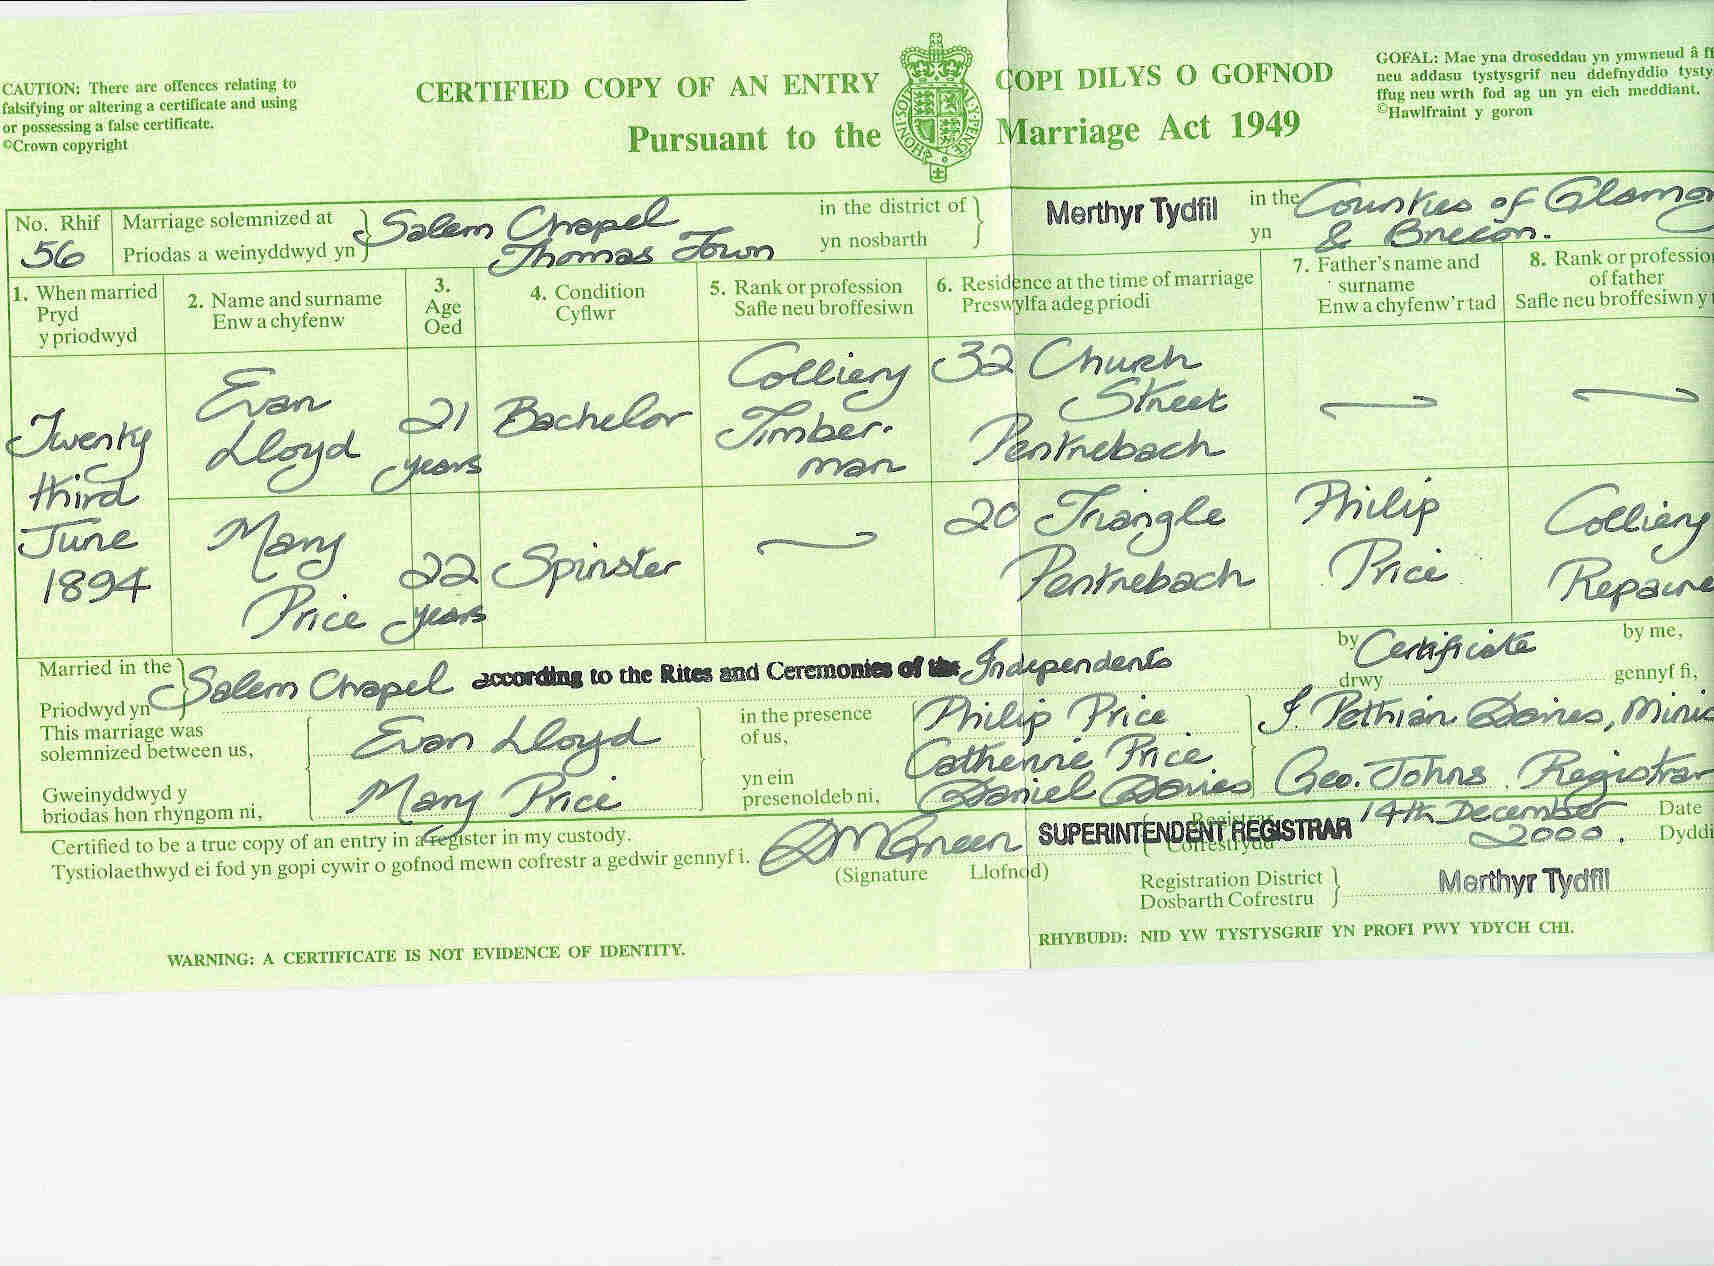 CAUTION: There are offences relating to
falsifying or altering a certificate and using
or possessing a false certificate.
©Crown copyright
CERTIFIED COPY OF AN ENTRY
Pursuant to the
COPI DILYS O GOFNOD
Marriage Act 1949
GOFAL: Mae yna droseddau yn ymwneud â ff
neu addasu tystysgrif neu ddefnyddio tysty
ffug neu wrth fod ag un yn eich meddiant.
©Hawlfraint y goron
No. Rhif
56
Marriage solemnized at
Priodas a weinyddwyd yn
Salem Chapel
Thomas Town
in the district of
yn nosbarth
Merthyr Tydfil
in the
yn
Counties of Glamor
& Brecon.
1. When married
Pryd
y priodwyd
2. Name and surname
Enw a chyfenw
3.
Age
Oed
4. Condition
Cyflwr
5. Rank or profession
Safle neu broffesiwn
6. Residence at the time of marriage
Preswylfa adeg priodi
7. Father's name and
surname
Enw a chyfenw'r tad
8. Rank or professio
of father
Safle neu broffesiwn y
Twenty
third
June
1894
Evan
Lloyd
21
years
Bachelor
Colliery
Timber-
man
32 Church
Street
Pentrebach
Mary
Price
22
years
Spinster
20 Triangle
Pentrebach
Philip
Price
Colliery
Repaire
Married in the
Priodwyd yn
Salem Chapel
according to the Rites and Ceremonies of the
Independents
by
drwy
Certificate
by me,
gennyf fi,
This marriage was
solemnized between us,
Gweinyddwyd y
briodas hon rhyngom ni,
Evan Lloyd
Mary Price
in the presence
of us,
yn ein
presenoldeb ni,
Philip Price
Catherine Price
Daniel Davies
J. Pethian Davies, Minis
Geo. Johns. Registrar
Certified to be a true copy of an entry in a register in my custody.
Tystiolaethwyd ei fod yn gopi cywir o gofnod mewn cofrestr a gedwir gennyf i.
(Signature Llofnod)
SUPERINTENDENT REGISTRAR
Registrar
Cofrestrydd
14th December
2000.
Date
Dyddi
Registration District
Dosbarth Cofrestru
Merthyr Tydfil
WARNING: A CERTIFICATE IS NOT EVIDENCE OF IDENTITY.
RHYBUDD: NID YW TYSTYSGRIF YN PROFI PWY YDYCH CHI.